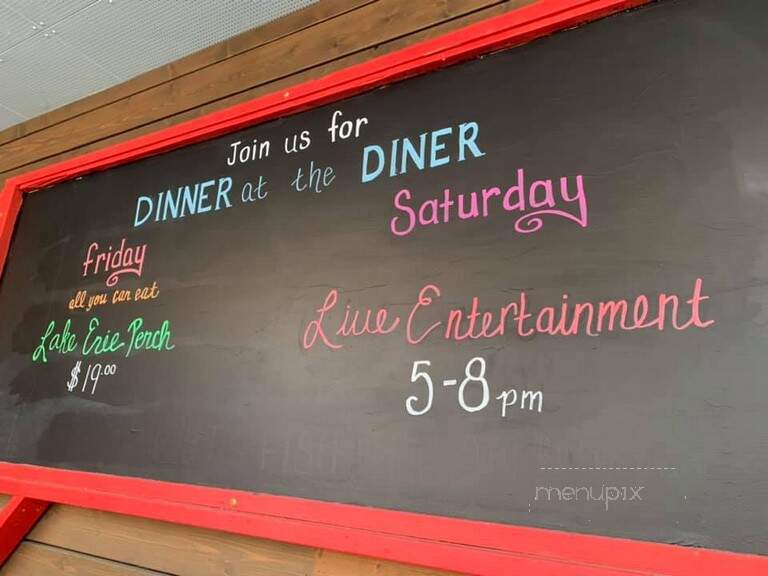 Join us for
DINNER at the DINER
friday
all you can eat
Lake Erie Perch
$19.00
Saturday
Live Entertainment
5-8 pm
menupix